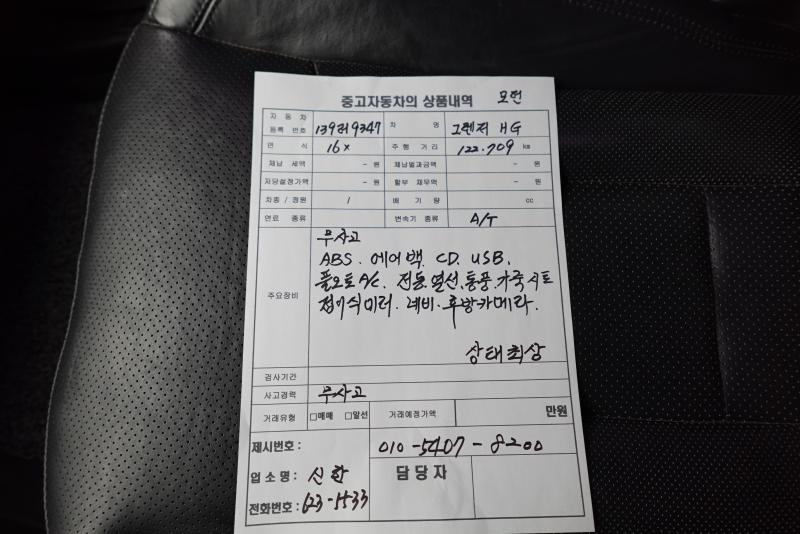 중고자동차의 상품내역 모던
자동차 등록 번호 139러9347 차명 그랜저 HG
연식 16x 주행 거리 122.709 km
체납 세액 - 원 체납벌과금액 - 원
저당설정가액 - 원 할부 채무액 - 원
차종 / 정원 / 배기량 cc
연료 종류 변속기 종류 A/T
주요장비
무사고
ABS. 에어백. CD. USB.
풀오토 A/C. 전동.열선.통풍.가죽시트
접이식미러. 네비. 후방카메라.
상태최상
검사기간
사고경력 무사고
거래유형 □매매 □알선 거래예정가액 만원
제시번호 : 010-5407-8200
업소명 : 신한 담당자
전화번호 : 623-1533